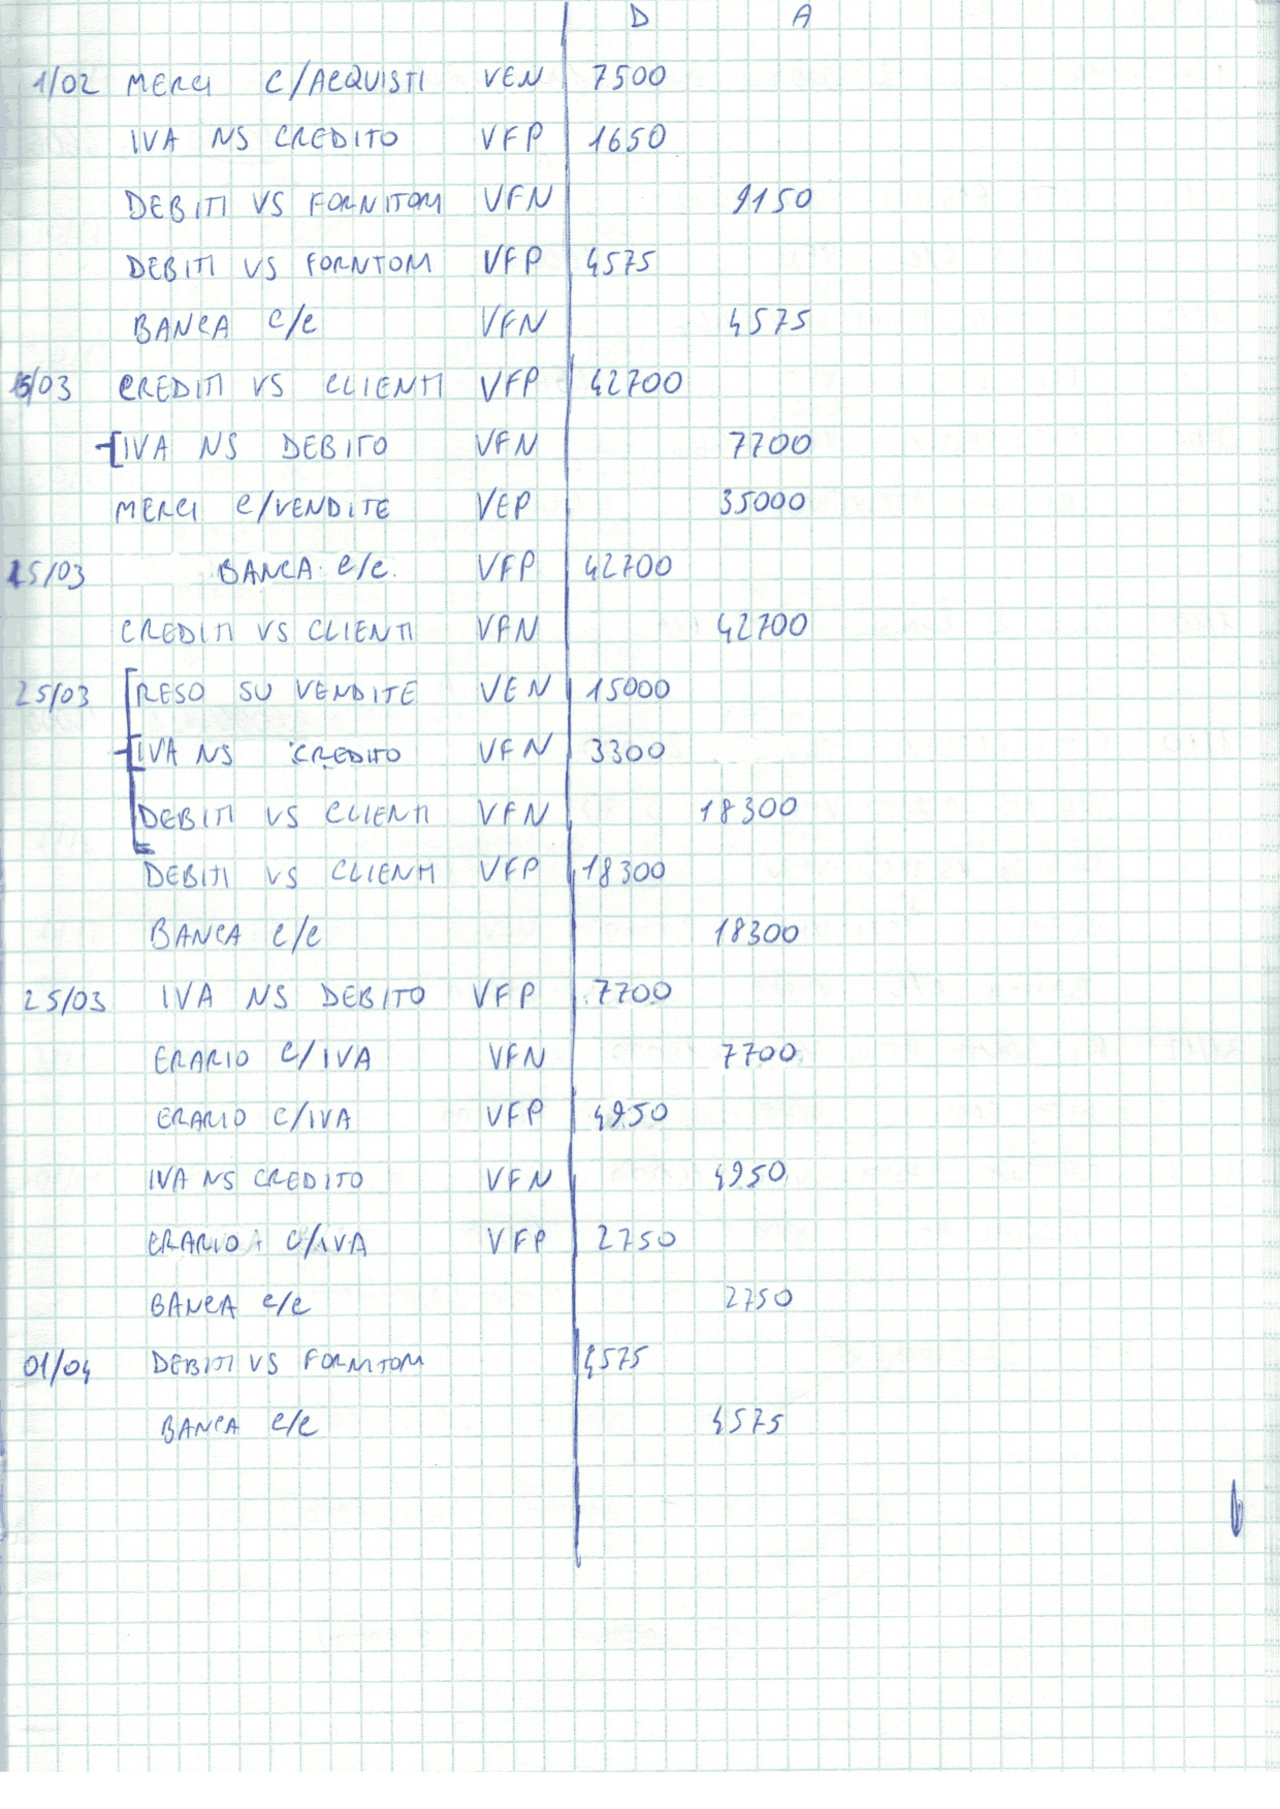 D A
1/02 MERCI C/ACQUISTI VEN 7500
IVA NS CREDITO VFP 1650
DEBITI VS FORNITORI VFN 9150
DEBITI VS FORNTORI VFP 4575
BANCA C/C VFN 4575
15/03 CREDITI VS CLIENTI VFP 42700
IVA NS DEBITO VFN 7700
MERCI C/VENDITE VEP 35000
15/03 BANCA C/C. VFP 42700
CREDITI VS CLIENTI VFN 42700
25/03 RESO SU VENDITE VEN 15000
IVA NS CREDITO VFN 3300
DEBITI VS CLIENTI VFN 18300
DEBITI VS CLIENTI VFP 18300
BANCA C/C 18300
25/03 IVA NS DEBITO VFP 7700
ERARIO C/IVA VFN 7700
ERARIO C/IVA VFP 4950
IVA NS CREDITO VFN 4950
ERARIO C/IVA VFP 2750
BANCA C/C 2750
01/04 DEBITI VS FORNITORI 4575
BANCA C/C 4575